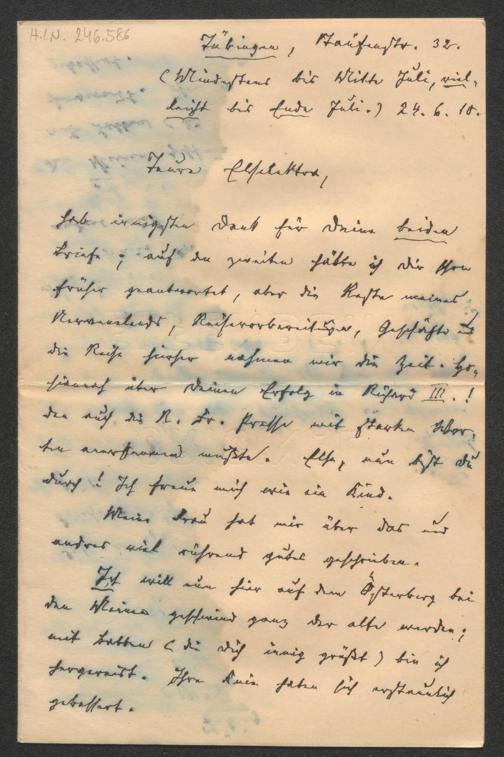 H.I.N. 246.586
Tübingen, Staufenstr. 32.
(Mindestens bis Mitte Juli, viel-
leicht bis Ende Juli.) 24. 6. 10.
Teure Elselektra,
hab innigsten Dank für Deine beiden
Briefe; auf den zweiten hätte ich Dir schon
früher geantwortet, aber die Reste meines
Nervenelends, Reisevorbereitungen, Geschäfte und
die Reise hieher nahmen mir die Zeit. Ho-
siannah über Deinen Erfolg in Richard III.!
den auch die N. Fr. Presse mit starken Wor-
ten anerkennen mußte. Else, nun bist Du
durch! Ich freue mich wie ein Kind.
Meine Frau hat mir über das und
andres viel rührend gutes geschrieben.
Ich will nun hier auf dem Österberg bei
den Meinen geschwind ganz der alte werden;
mit (die Dich innig grüßt) bin ich
hergereist. Ihre Knie haben sich erstaunlich
gebessert.